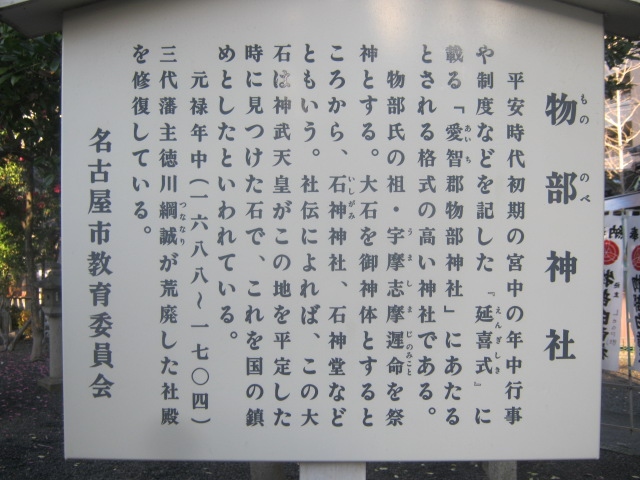 物部神社
もの のべ
平安時代初期の宮中の年中行事
や制度などを記した『延喜式』に
えんぎしき
載る「愛智郡物部神社」にあたる
あいち
とされる格式の高い神社である。
物部氏の祖・宇摩志摩遅命を祭
うましまじのみこと
神とする。大石を御神体とすると
ころから、石神神社、石神堂など
いしがみ
ともいう。社伝によれば、この大
石は神武天皇がこの地を平定した
時に見つけた石で、これを国の鎮
めとしたといわれている。
元禄年中(一六八八〜一七〇四)
三代藩主徳川綱誠が荒廃した社殿
つななり
を修復している。
名古屋市教育委員会